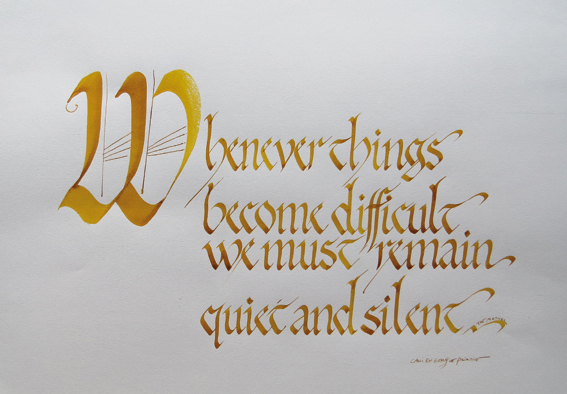 Whenever things
become difficult
we must remain
quiet and silent.